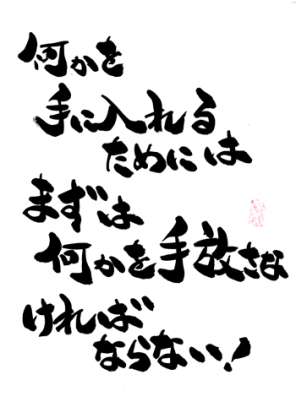 何かを
手に入れる
ためには
まずは
何かを手放さな
ければ
ならない!